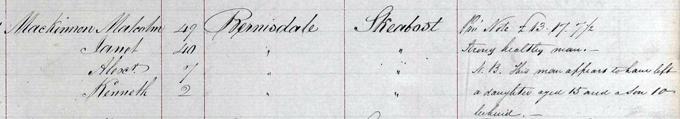 Mackinnon Malcolm 49 Bernisdale Skeabost Pri Note £13.17.7½
Janet 40 " " Strong healthy man.—
Alexr. 7 " " N.B. This man appears to have left
Kenneth 2 " " a daughter aged 15 and a son 10
behind.—